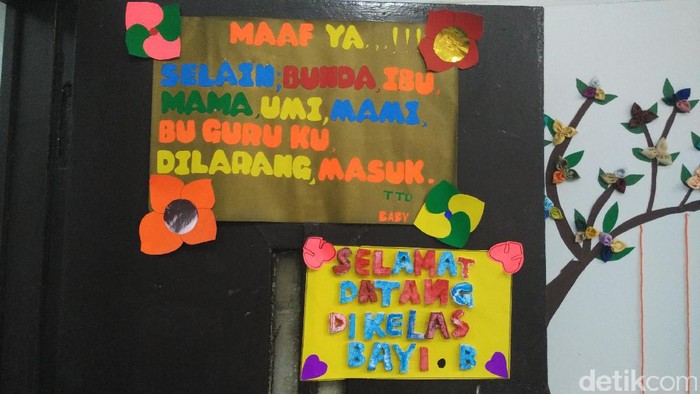 MAAF YA...!!!
SELAIN;BUNDA,IBU,
MAMA,UMI,MAMI,
BU GURU KU,
DILARANG,MASUK.
TTD
BABY
SELAMAT
DATANG
DI KELAS
BAYI.B
detikcom